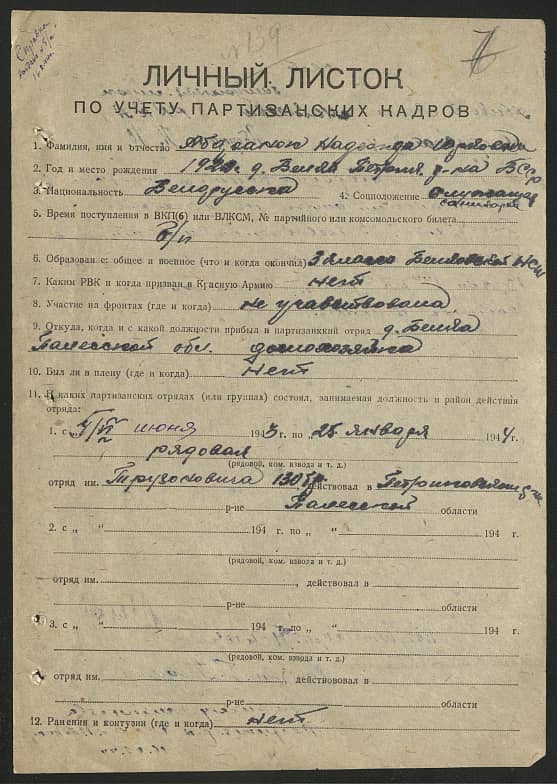 № 139
ЛИЧНЫЙ ЛИСТОК
ПО УЧЕТУ ПАРТИЗАНСКИХ КАДРОВ
1. Фамилия, имя и отчество Надежда
2. Год и место рождения д. Беляе Петрик. р-на БССР
3. Национальность Белоруска 4. Соцположение служащая
санитарка
5. Время поступления в ВКП(б) или ВЛКСМ, № партийного или комсомольского билета
б/п
6. Образование: общее и военное (что и когда окончил) 3 класса НСШ
7. Каким РВК и когда призван в Красную Армию нет
8. Участие на фронтах (где и когда) не учавствовала
9. Откуда, когда и с какой должности прибыл в партизанский отряд д.
Полесской обл. домохозяйка
10. Был ли в плену (где и когда) Нет
11. В каких партизанских отрядах (или группах) состоял, занимаемая должность и район действия
отряда:
1. с июня 1943 г. по „25 января 1944 г.
рядовая
(рядовой, ком. взвода и т. д.)
отряд им. 130 бр. действовал в
р-не Полесской области
2. с „ “ 194 г. по „ “ 194 г.
(рядовой, ком. взвода и т. д.)
отряд им. , действовал в
р-не области
3. с „ “ 194 г. по „ “ 194 г.
(рядовой, ком. взвода и т. д.)
отряд им. , действовал в
р-не области
12. Ранения и контузии (где и когда) нет